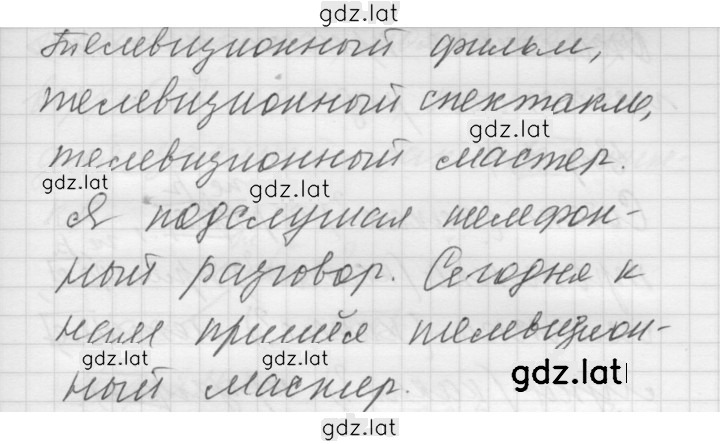 gdz.lat
Телевизионный фильм,
телевизионный спектакль,
gdz.lat
телевизионный мастер.
gdz.lat
gdz.lat
Я подслушал телефон-
ный разговор. Сегодня к
нам пришёл телевизион-
gdz.lat
gdz.lat
gdz.lat
ный мастер.
gdz.lat